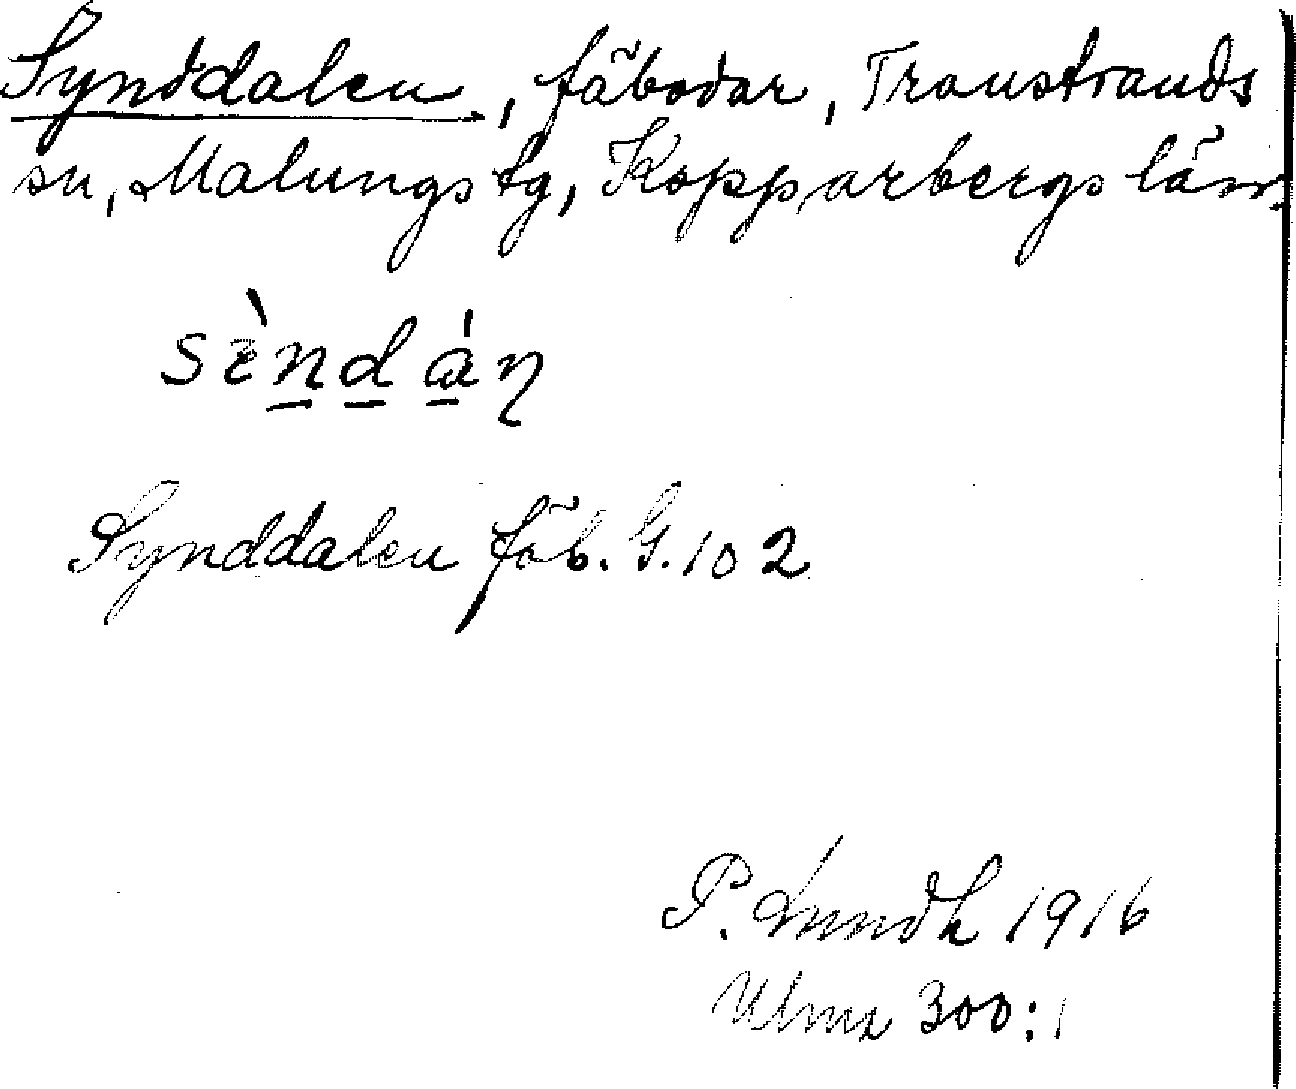 Synddalen, fäbodar, Transtrands
sn, Malungs tg, Kopparbergs län.
sèndàn
Synddalen fäb. G. 102
P. Lundh 1916
Ulma 300:1